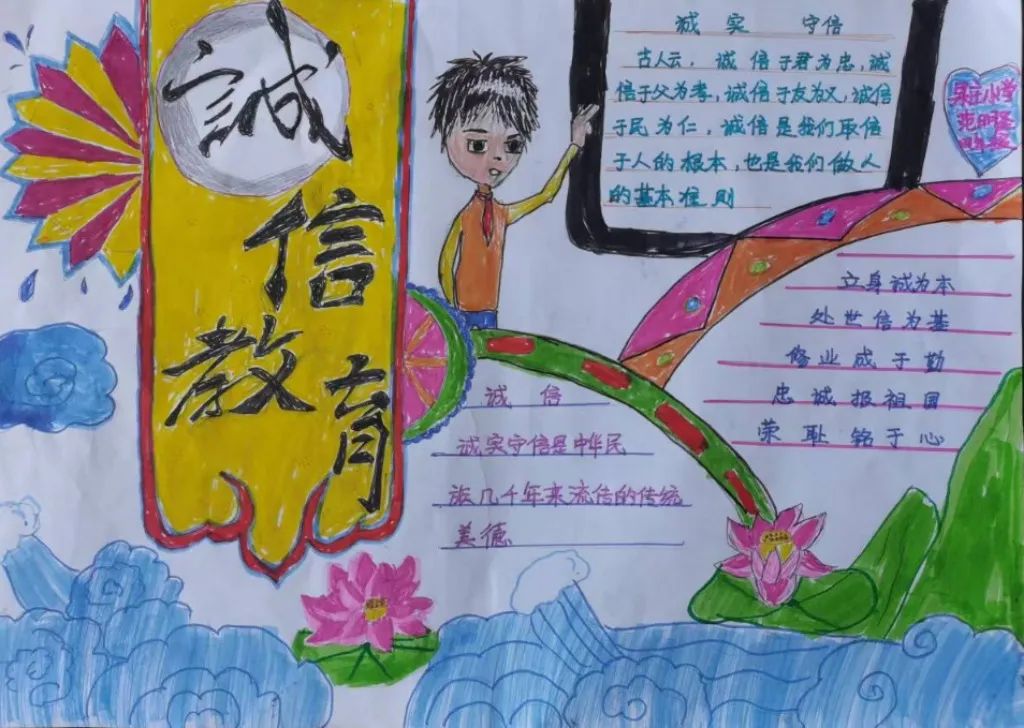 誠
信
教
育
诚实 守信
古人云，诚信于君为忠，诚
信于父为孝，诚信于友为义，诚信
于民为仁，诚信是我们取信
于人的根本，也是我们做人
的基本准则
小学
立身诚为本
处世信为基
修业成于勤
忠诚报祖国
荣耻铭于心
诚信
诚实守信是中华民
族几千年来流传的传统
美德